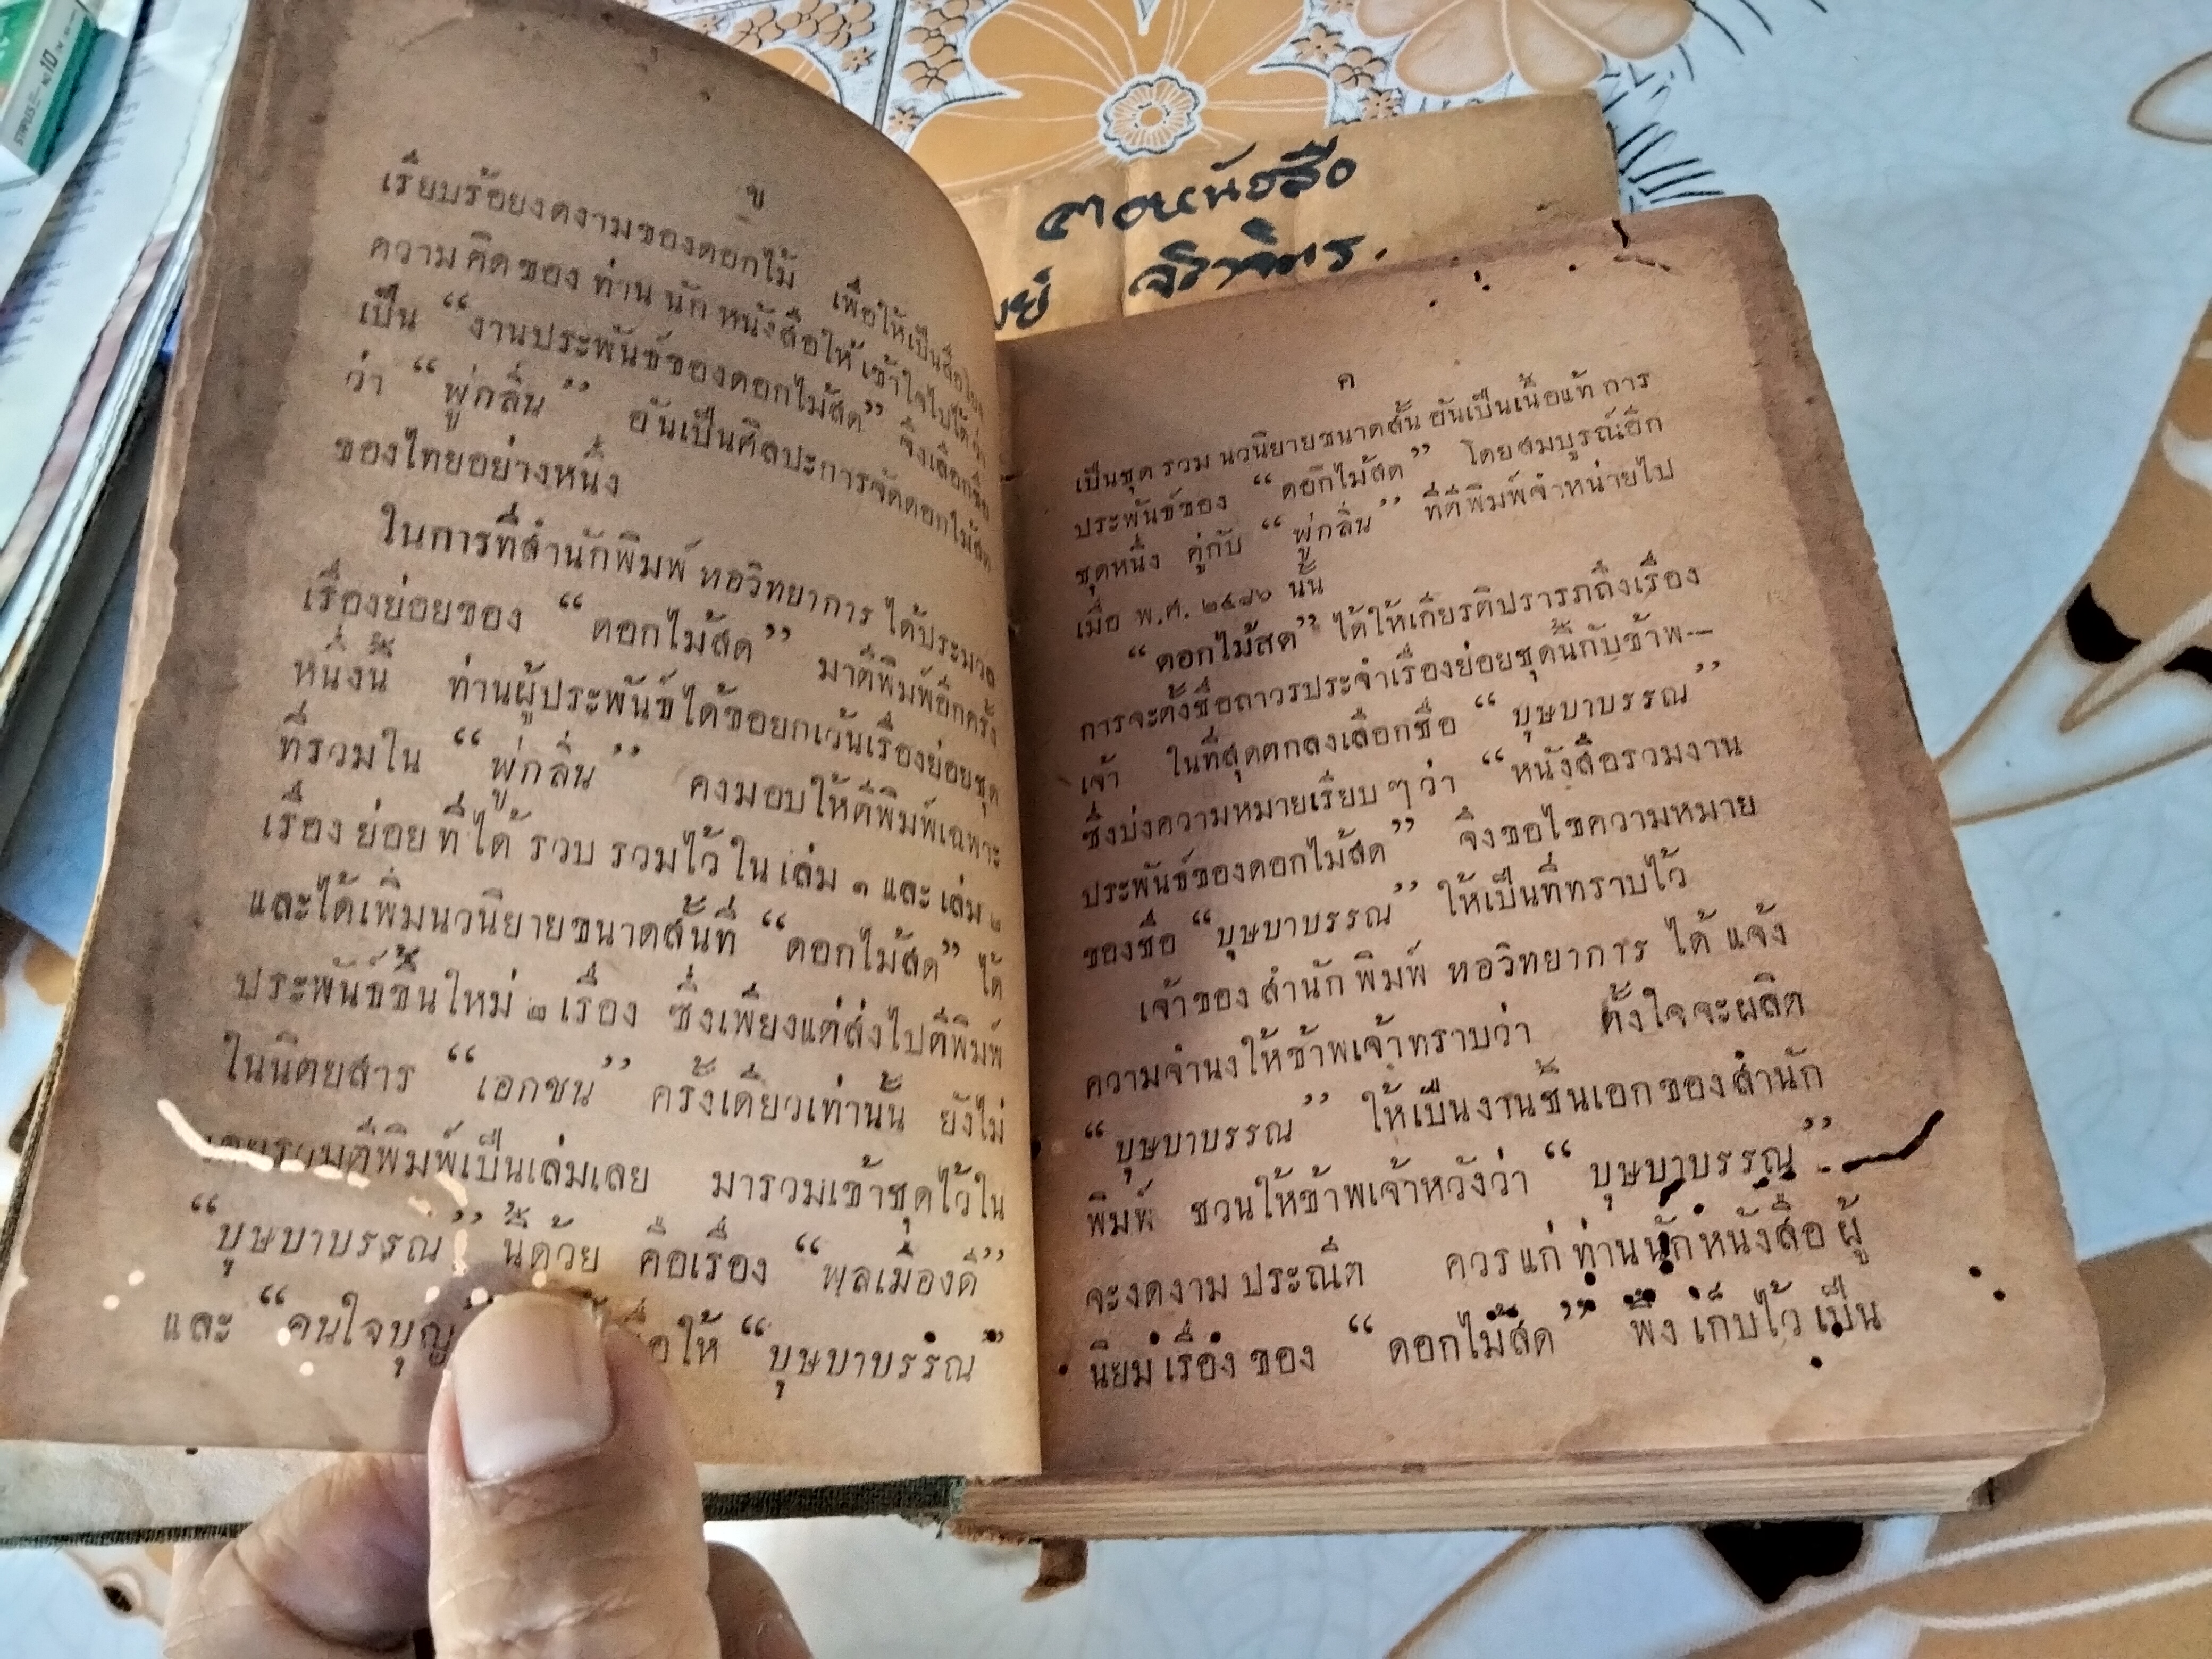 ข
เรียบร้อยงดงามของดอกไม้ เพื่อให้เป็นสื่อโยง
ความคิดของท่านนักหนังสือให้เข้าใจไปได้ว่า
เป็น “งานประพันธ์ของดอกไม้สด” จึงเลือกชื่อ
ว่า “พู่กลิ่น” อันเป็นศิลปะการจัดดอกไม้สด
ของไทยอย่างหนึ่ง
ในการที่สำนักพิมพ์ หอวิทยาการ ได้ประมวล
เรื่องย่อยของ “ดอกไม้สด” มาตีพิมพ์อีกครั้ง
หนึ่งนี้ ท่านผู้ประพันธ์ได้ขอยกเว้นเรื่องย่อยชุด
ที่รวมใน “พู่กลิ่น” คงมอบให้ตีพิมพ์เฉพาะ
เรื่องย่อยที่ได้รวบรวมไว้ในเล่ม ๑ และเล่ม ๒
และได้เพิ่มนวนิยายขนาดสั้นที่ “ดอกไม้สด” ได้
ประพันธ์ขึ้นใหม่ ๒ เรื่อง ซึ่งเพียงแต่ส่งไปตีพิมพ์
ในนิตยสาร “เอกชน” ครั้งเดียวเท่านั้น ยังไม่
เคยรวมตีพิมพ์เป็นเล่มเลย มารวมเข้าชุดไว้ใน
“บุษบาบรรณ” นี้ด้วย คือเรื่อง “พลเมืองดี”
และ “คนใจบุญ ให้ “บุษบาบรรณ”
ค
เป็นชุดรวมนวนิยายขนาดสั้น อันเป็นเนื้อแท้ การ
ประพันธ์ของ “ดอกไม้สด” โดยสมบูรณ์อีก
ชุดหนึ่ง คู่กับ “พู่กลิ่น” ที่ตีพิมพ์จำหน่ายไป
เมื่อ พ.ศ. ๒๔๘๖ นั้น
“ดอกไม้สด” ได้ให้เกียรติปรารภถึงเรื่อง
การจะตั้งชื่อถาวรประจำเรื่องย่อยชุดนี้กับข้าพ—
เจ้า ในที่สุดตกลงเลือกชื่อ “บุษบาบรรณ”
ซึ่งบ่งความหมายเรียบ ๆ ว่า “หนังสือรวมงาน
ประพันธ์ของดอกไม้สด” จึงขอไขความหมาย
ของชื่อ “บุษบาบรรณ” ให้เป็นที่ทราบไว้
เจ้าของสำนักพิมพ์ หอวิทยาการ ได้แจ้ง
ความจำนงให้ข้าพเจ้าทราบว่า ตั้งใจจะผลิต
“บุษบาบรรณ” ให้เป็นงานชิ้นเอกของสำนัก
พิมพ์ ชวนให้ข้าพเจ้าหวังว่า “บุษบาบรรณ”
จะงดงามประณีต ควรแก่ท่านนักหนังสือผู้
นิยมเรื่องของ “ดอกไม้สด” พึงเก็บไว้เป็น
STAPLES No.10